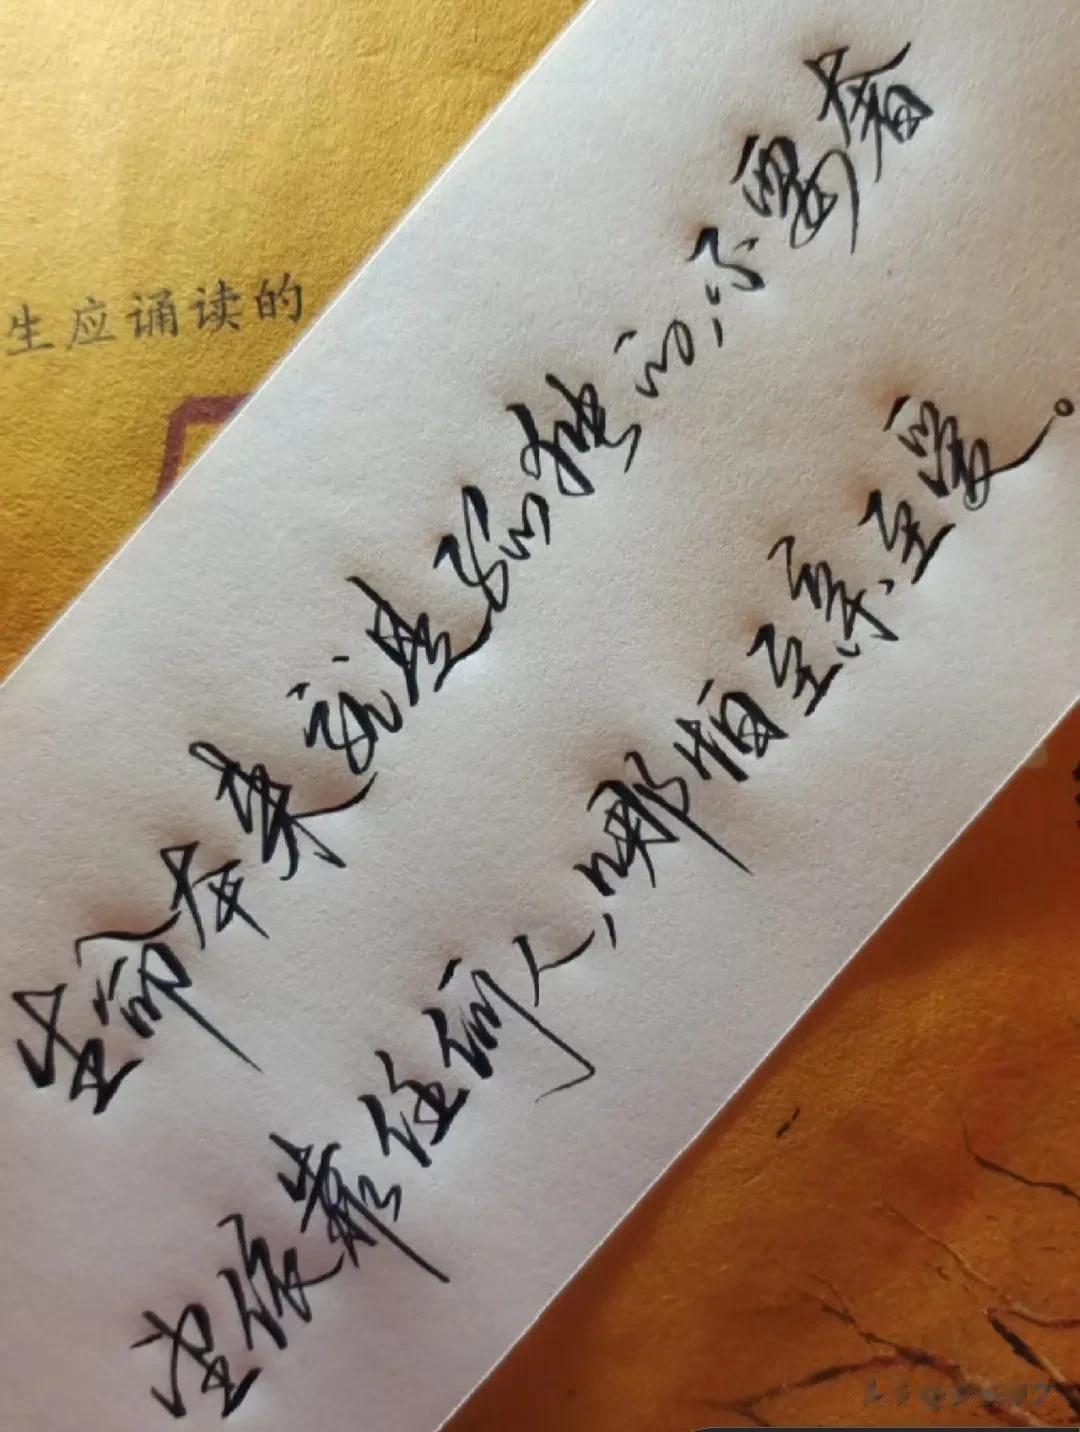 生应诵读的
生命本来就是孤独的,不要奢
望依靠任何人,哪怕至亲、至爱。